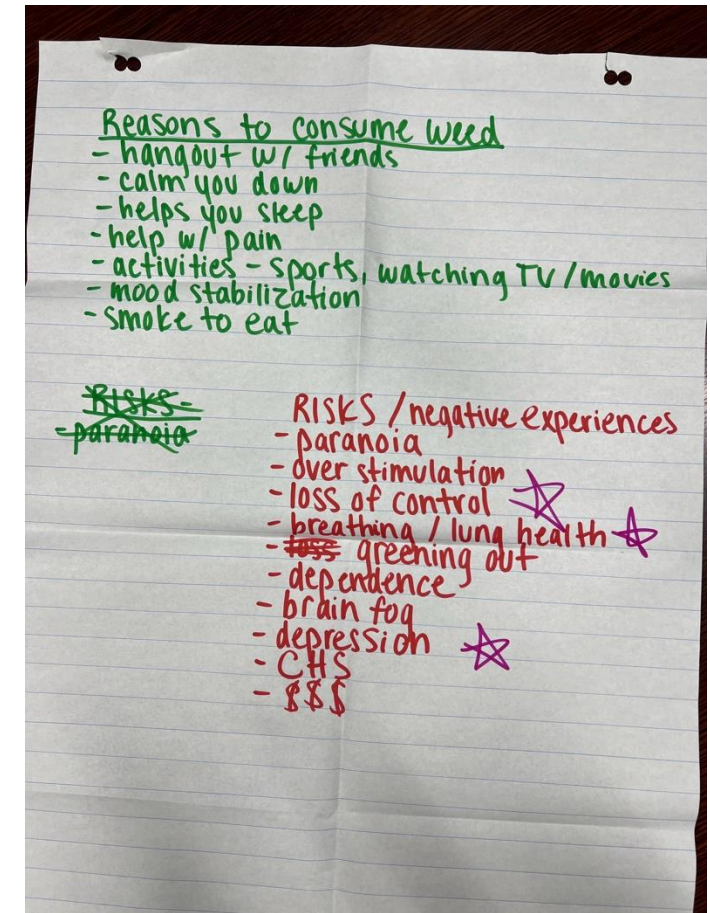 Reasons to consume weed
- hangout w/ friends
- calm you down
- helps you sleep
- help w/ pain
- activities - sports, watching TV / movies
- mood stabilization
- smoke to eat
RISKS -
- paranoia
RISKS / negative experiences
- paranoia
- over stimulation
- loss of control
- breathing / lung health
- loss greening out
- dependence
- brain fog
- depression
- CHS
- $$$